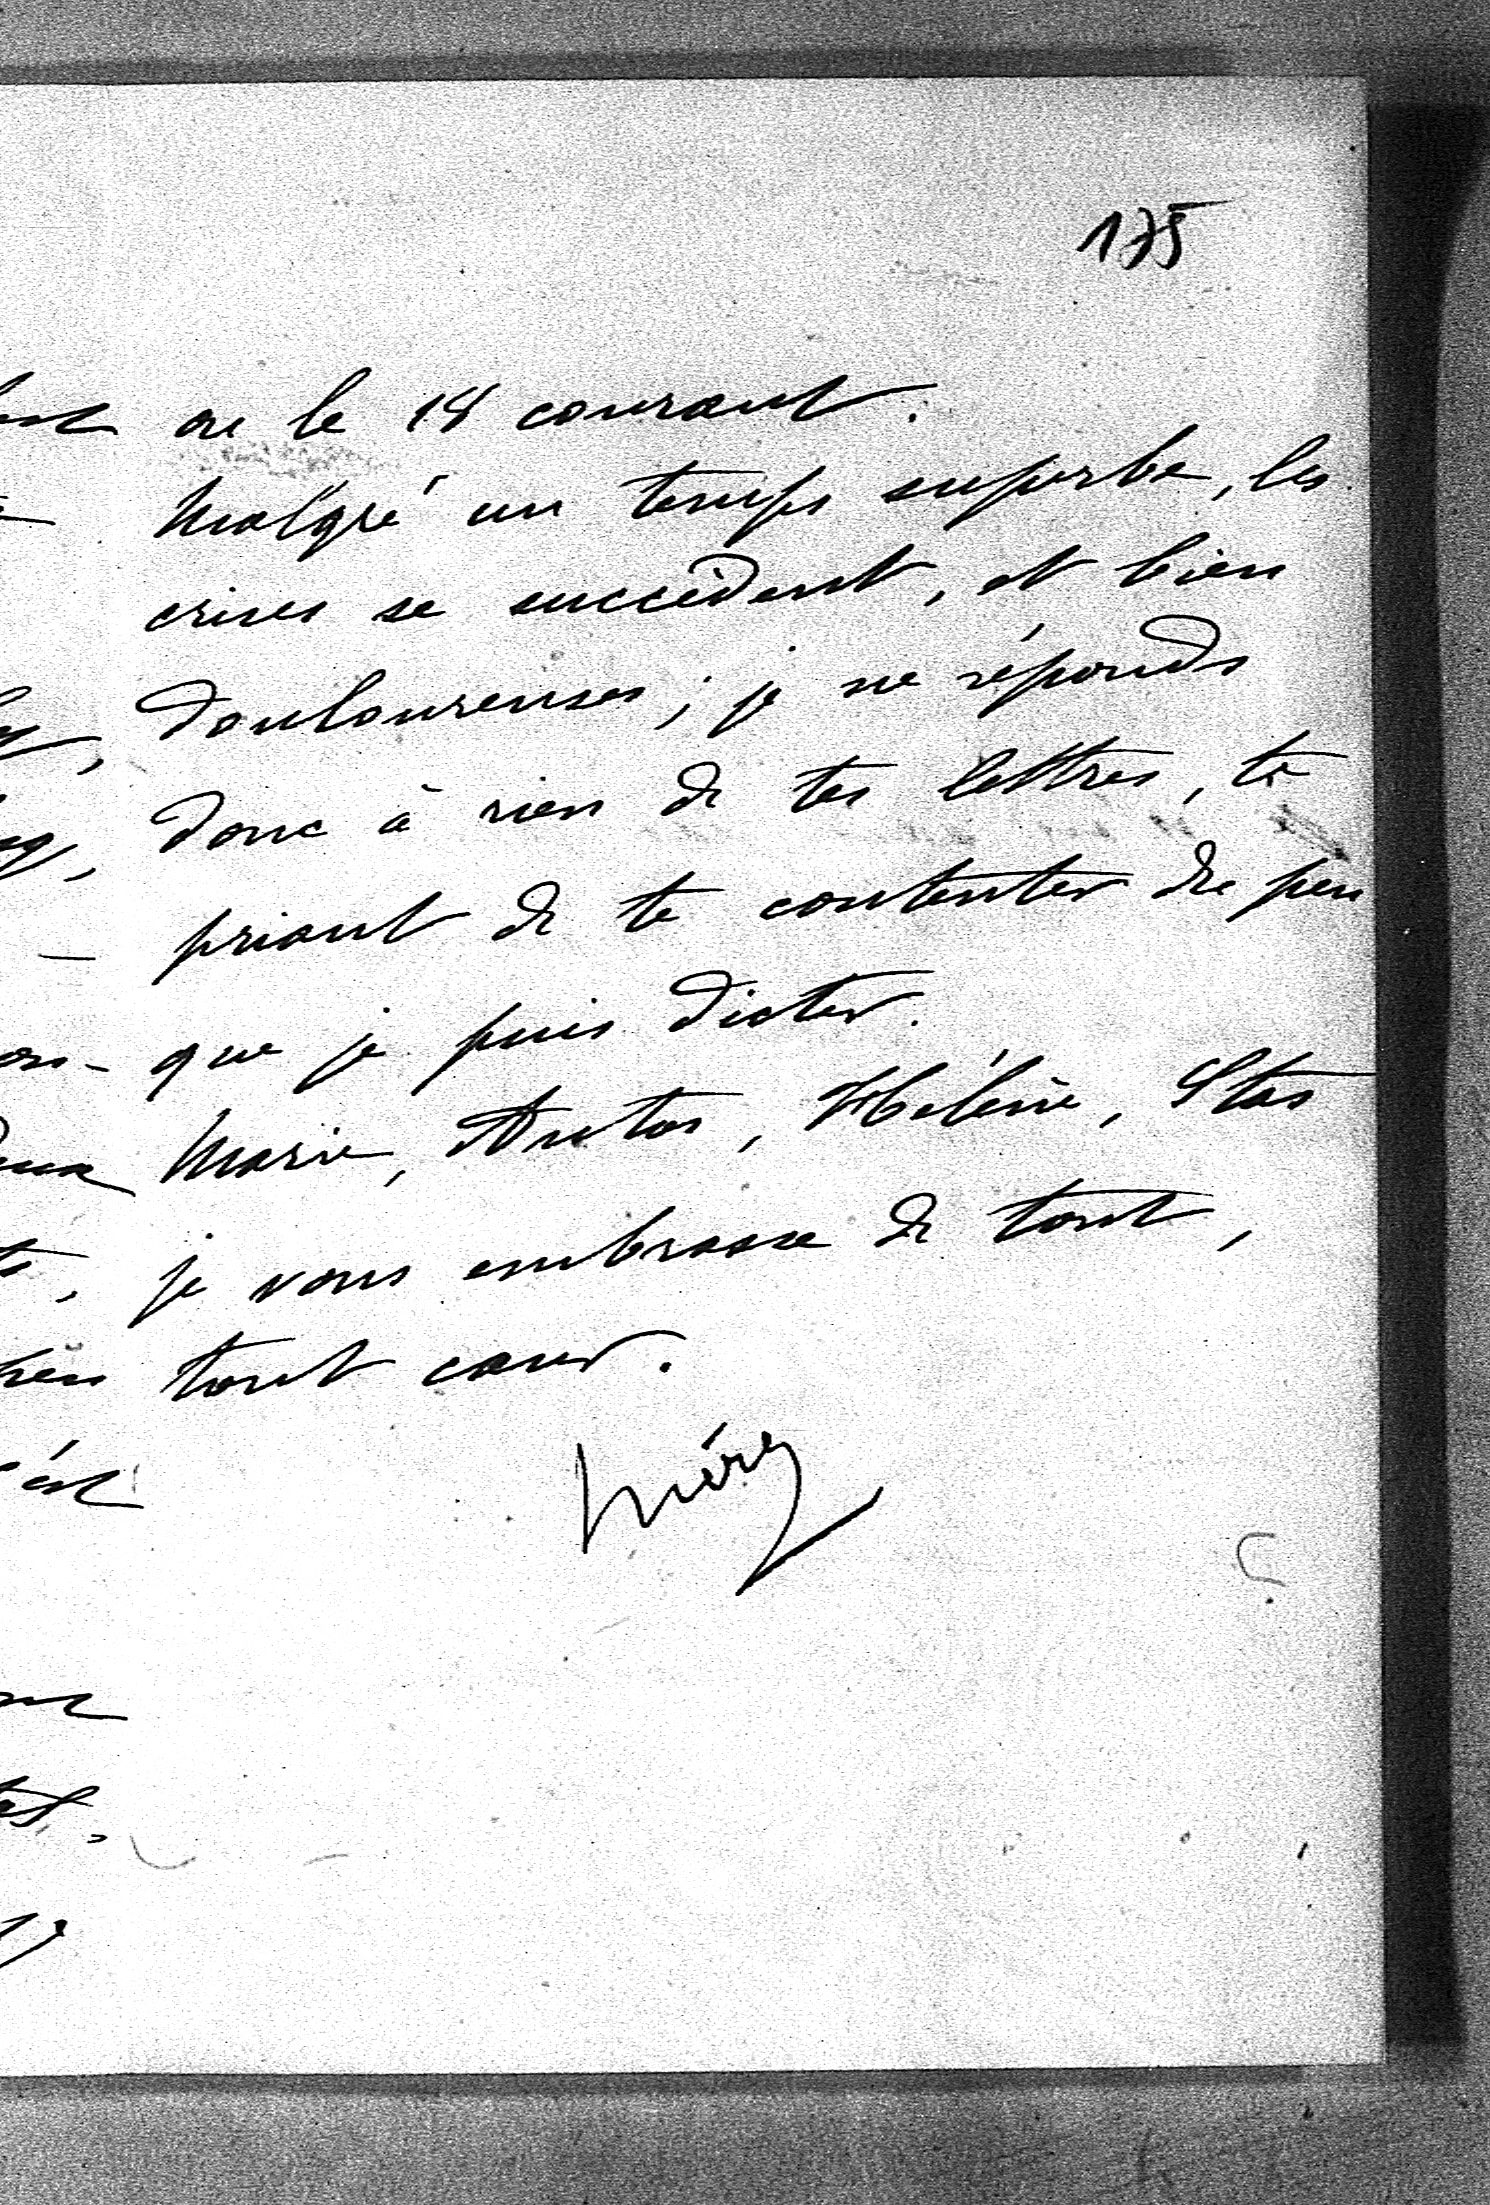 175
ou le 18 courant.
Malgré un temps superbe, les
crises se succèdent, et bien
douloureuses ; je ne réponds
donc à rien de tes lettres, te
priant de te contenter du peu
que je puis dicter.
Marie, Antos, Hélène, Stas
je vous embrasse de tout,
tout cœur.
Méry